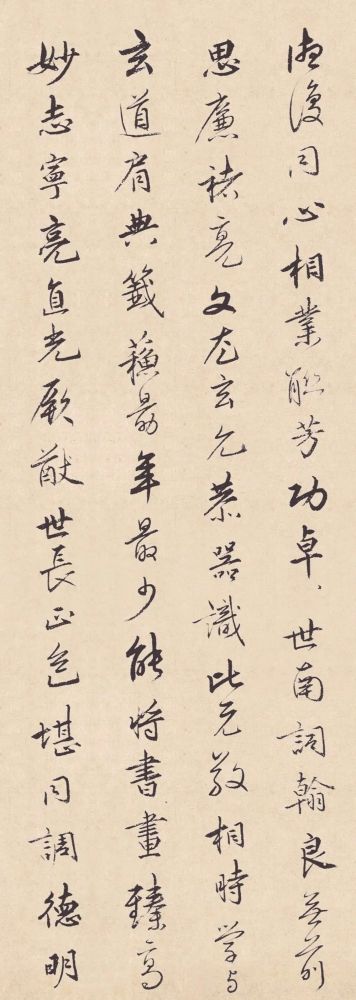 恤復同心相業聯芳功卓世南詞翰良無前
思廉褚亮文尤玄允恭器識比元敬相時学与
玄道肩典籤蘇勗年最少能將書畫臻高
妙志寧亮直光厥猷世長正色堪同調德明